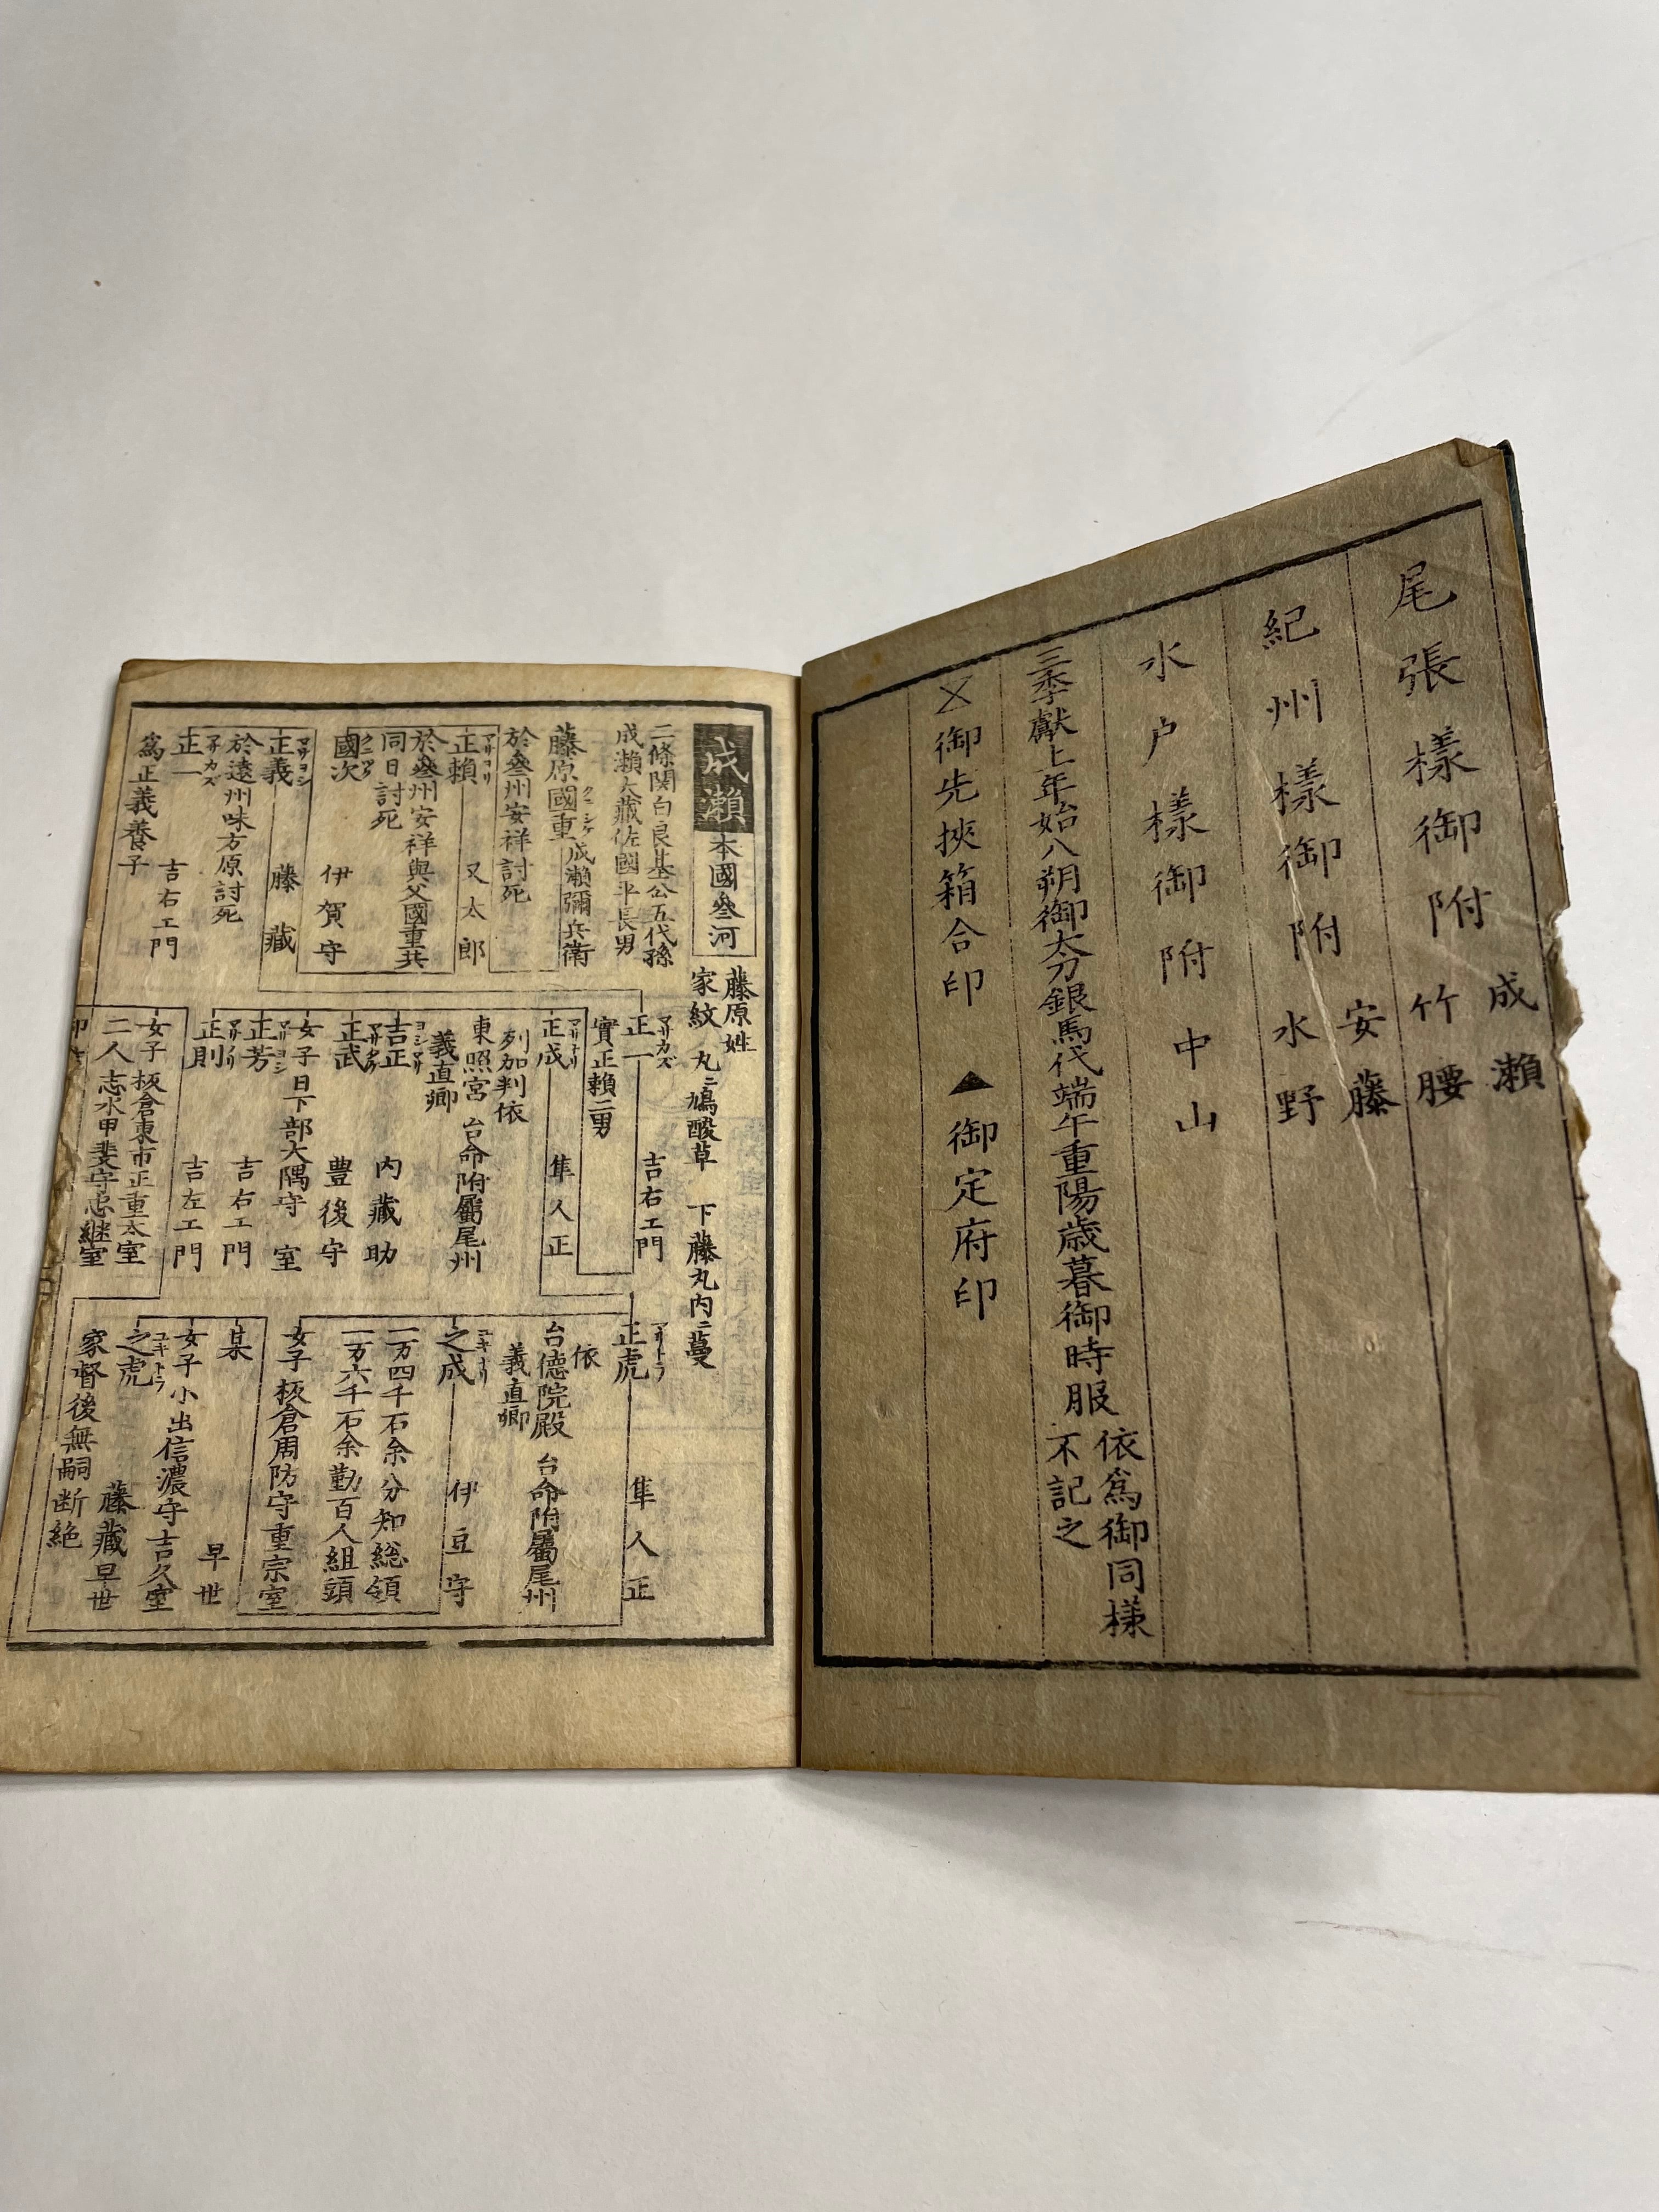 尾張様御附 成瀬
竹腰
紀州様御附 安藤
水野
水戸様御附 中山
三季獻上年始八朔御太刀銀馬代端午重陽歳暮御時服 依爲御同様
不記之
御先挾箱合印 ▲御定府印
成瀬 本國叄河
藤原姓
家紋 丸ニ鳩酸草 下藤丸内ニ蔓
二條関白良基公五代孫
成瀬大藏佐國平長男
藤原國重 クニシゲ 成瀬彌兵衛
於叄州安祥討死
正頼 マサヨリ 又太郎
於叄州安祥與父國重共
同日討死
國次 クニツグ 伊賀守
正義 マサヨシ 藤藏
於遠州味方原討死
正一 マサカズ 吉右エ門
爲正義養子
正一 マサカズ 吉右エ門
實正頼二男
正成 マサナリ 隼人正
列加判依
東照宮 台命附屬尾州
義直卿
吉正 ヨシマサ 内藏助
正武 マサタケ 豊後守
女子 日下部大隅守 室
正芳 マサヨシ 吉右エ門
正則 マサノリ 吉左エ門
女子 板倉東市正重太室
二人 志水甲斐守忠継室
正虎 マサトラ 隼人正
依
台德院殿 台命附屬尾州
義直卿
之成 ユキナリ 伊豆守
二万四千石余分知総領
一万六千石余勤百人組頭
女子 板倉周防守重宗室
某 早世
女子 小出信濃守吉久室
之虎 ユキトラ 藤藏早世
家督後無嗣断絶